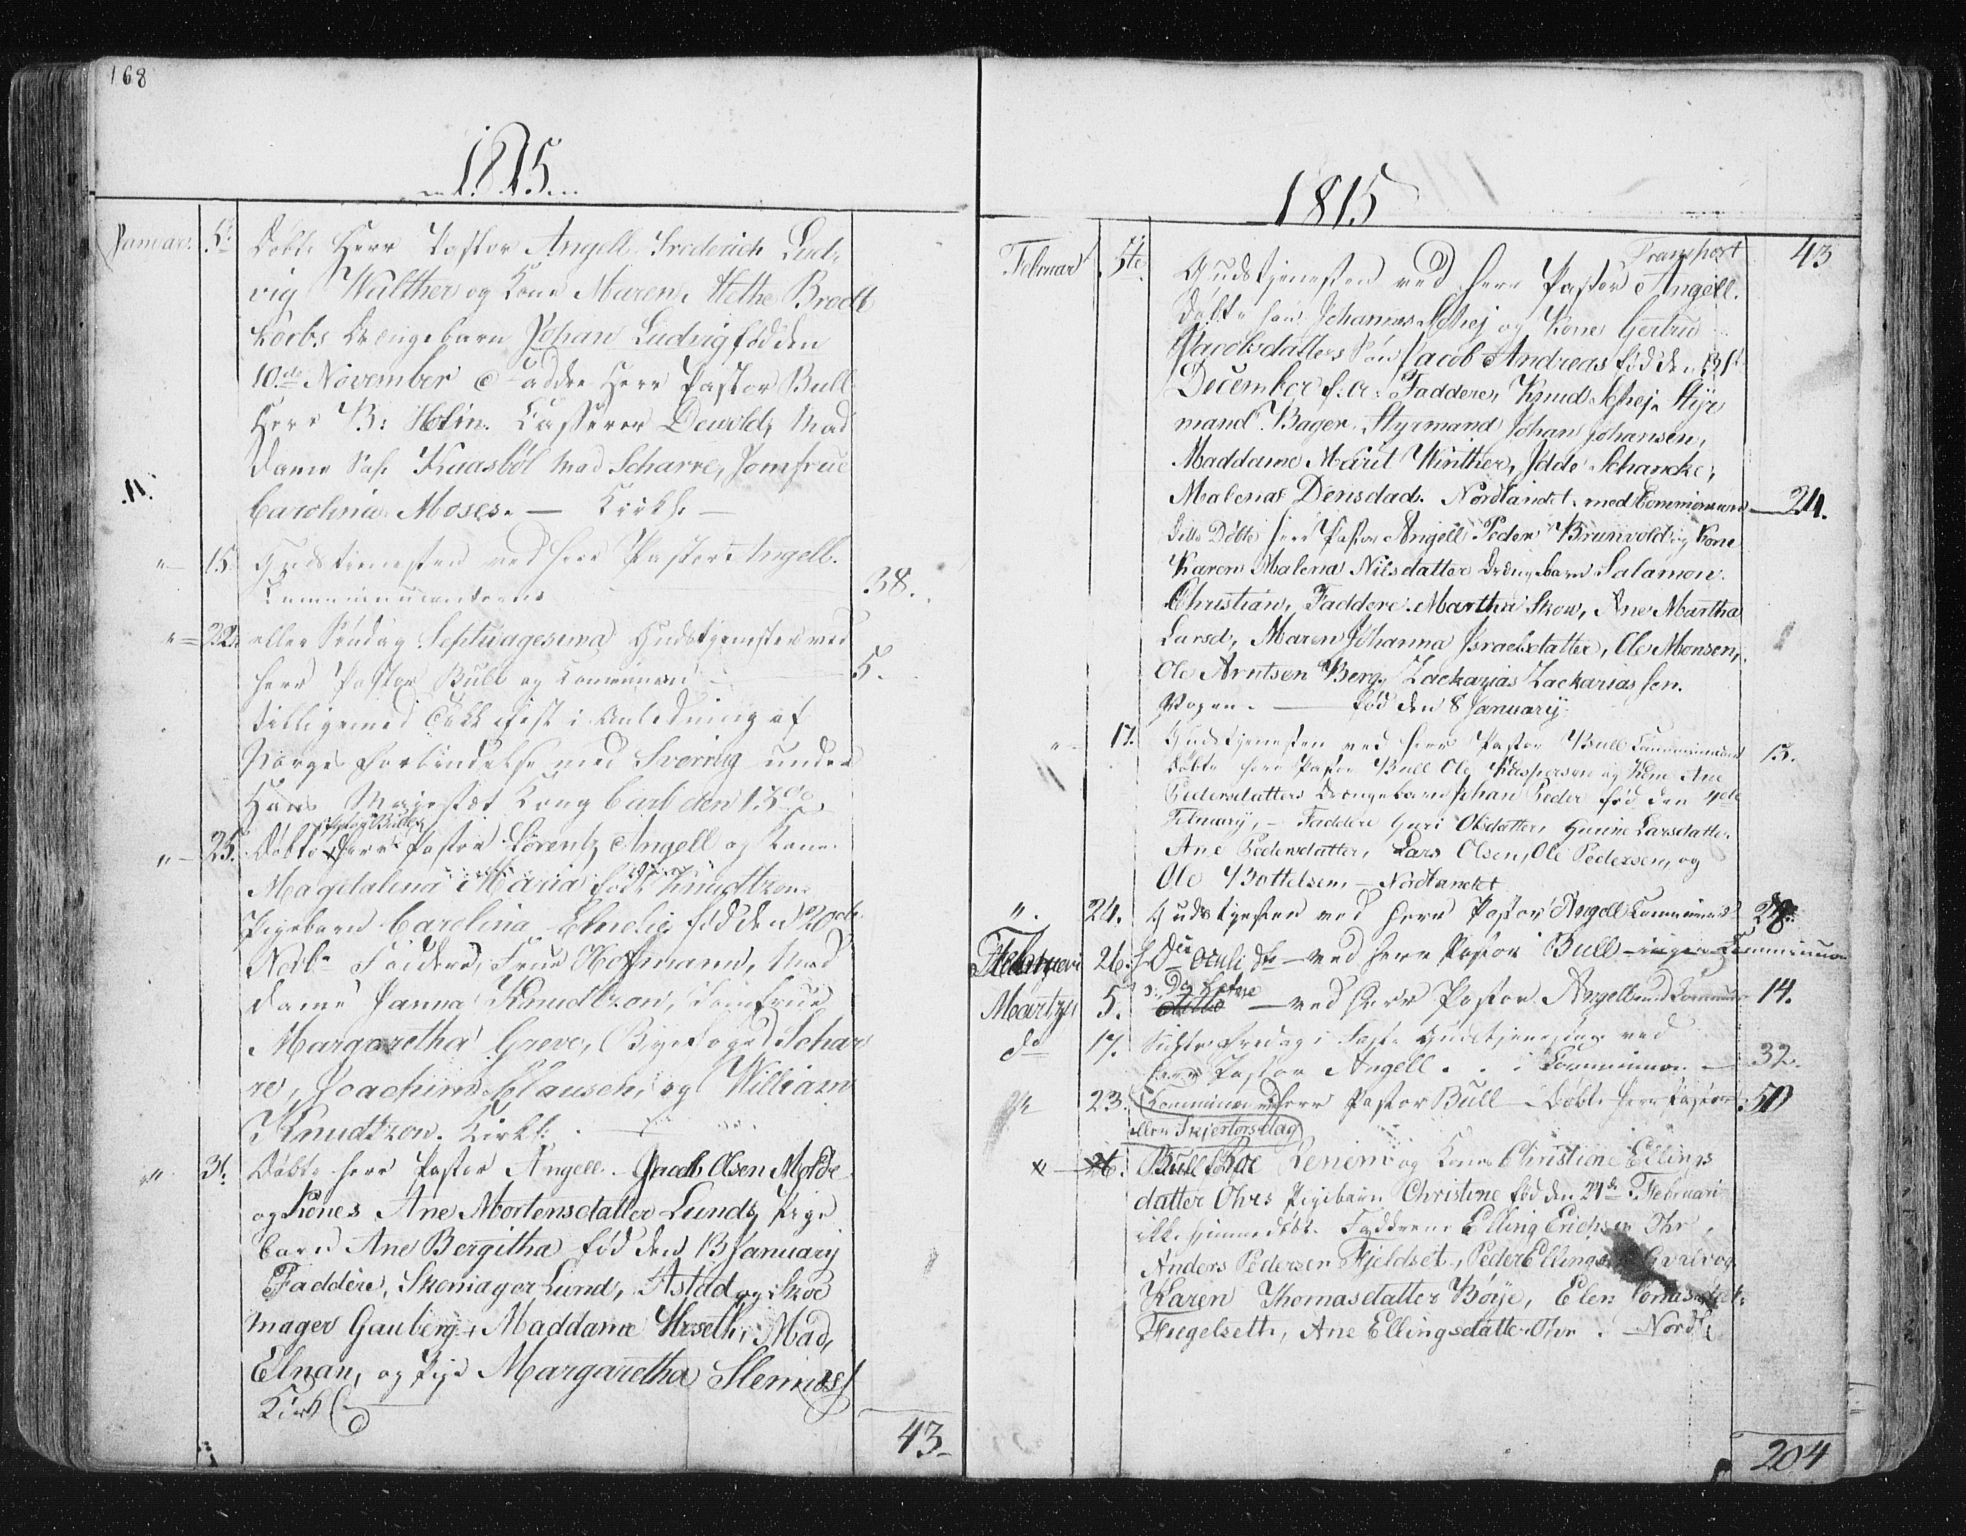 168
1815
Januari 5te Døbte Herr Pastor Angell Frederich Lud-
vig Walther og Kone Maren Methe Brodt
korbs Drængebarn Johan Ludvig fød den
10de November Faddre Herr Pastor Bull
Herr B: Holin. Casserer Dewold, Mad
dame Kaasbøl Mad Scharre, Jomfrue
Carolina Moses. — Kirk
" 15. Gudstienesten ved Herr Pastor Angell.
Communicantere 38.
" 22. eller Søndag Septuagesima Gudstjenesten ved
Herr Pastor Bull og Communion 5.
tilligemed Takkefest i Anledning af
Norges Forbindelse med Sverrig under
Hans Majestæt Kong Carl den 13de
" 25. Døbte Herr Pastor Lorentz Angell og Kone
Magdalena Maria fød Knudtzon
Pigebarn Carolina Emelie fød den 20de
Novbr Faddere, Frue Hoffmann, Mad
dame Janna Knudtzon, Jomfrue
Margaretha Greve, Byefoged Schar
re, Joachim Clausen, og William
Knudtzon. Kirk
" 31. Døbte Herr Pastor Angell Jacob Olsen Molde
og Kones Ane Mortensdatter Lunds Pige
barn Ane Bergitha fød den 13 January
Faddere, Skomager Lund, Astad og Skoe
mager Gauberg, Maddame Heseth, Mad,
Elnan, og Pige Margaretha
Kirk
43
1815
Transport 43
Februar 5te Gudstjenesten ved Herr Pastor Angell.
Døbte han Johannes Schej og Kone Gertrud
Jacobsdatters Søn Jacob Andreas fød den 31t
December f: a: Faddere, Knud Schej, Styr
mand Bager, Styrmand Johan Johansen,
Maddame Marit Winther, Idde Schancke,
Malena Densdad. Nordlandet. med Communion 24.
Dito Døbte Herr Pastor Angell Peder Brunvold og Kone
Karen Malena Nilsdatter Drengebarn Salamon
Christian, Faddere Martha Skow, Ane Martha
Larsd, Maren Johanna Israelsdatter, Ole Monsen,
Ole Arntsen Berg, Zackarias Zackariassen.
Vogen. — fød den 8 January
" 17. Gudstjenesten ved Herr Pastor Bull Communion 15.
Døbte Herr Pastor Bull Ole Kaspersen og Kone Ane
Pedersdatters Drengebarn Johan Peder fød den 4de
February, — Faddere Guri Olsdatter, Gunne Larsdatter
Ane Pedersdatter, Lars Olsen, Ole Pedersen, og
Ole Bottelsen, — Nordlandet
" 24. Gudstjesten ved Herr Pastor Angell Communion 28.
Februari 26. Oculi do — ved Herr Pastor Bull — ingen Communion
Martzi 5. ditto — ved Herr Pastor Angell med Communion 14.
do 17. Fredag i Faste Gudstjenesten ved
Herr Pastor Angell . . i Communion — 32.
23. Communion ved Herr Pastor Bull — Døbte Herr Pastor 50
eller Skjertorsdag
26. Bull og Kone Christiane Ellings
datter Ohrs Pigebarn Christine fød den 24de Februari
ikke hiemmedøbt. Faddrene Elling Erichsen Ohr,
Anders Pedersen Fjeldset, Peder Ellings og
Karen Thomasdatter Bøije, Elen
Fugelseth, Ane Ellingsdatter Ohr. — Nordl
204